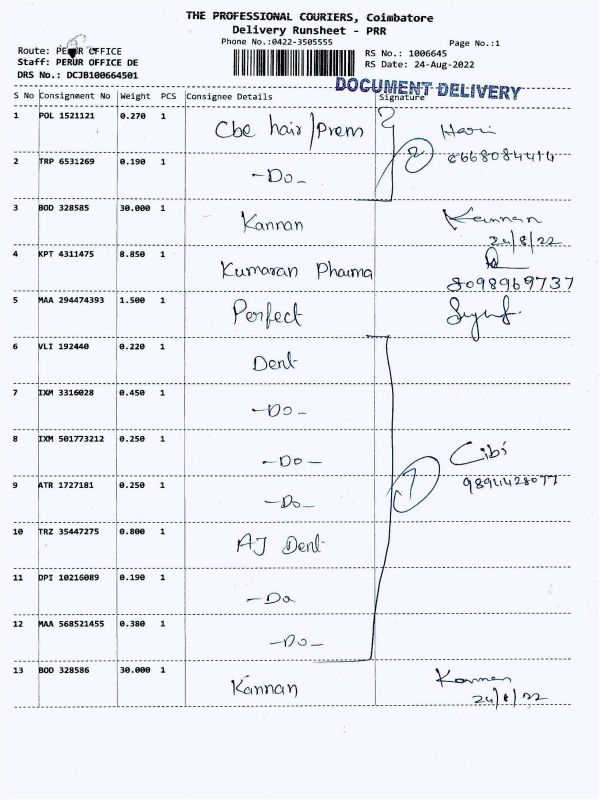 THE PROFESSIONAL COURIERS, Coimbatore
Delivery Runsheet - PRR
Phone No.:0422-3505555
Page No.:1
Route: PERUR OFFICE
RS No.: 1006645
Staff: PERUR OFFICE DE
RS Date: 24-Aug-2022
DRS No.: DCJB100664501
DOCUMENT DELIVERY
S No Consignment No Weight PCS Consignee Details Signature
1 POL 1521121 0.270 1 Cbe hair/Prem Hari
2 TRP 6531269 0.190 1 -Do- 2
3 BOD 328585 30.000 1 Kannan Kannan
24/8/22
4 KPT 4311475 8.850 1 Kumaran Pharma
8098969737
5 MAA 294474393 1.500 1 Perfect
6 VLI 192440 0.220 1 Dent
7 IXM 3316028 0.450 1 -Do-
8 IXM 501773212 0.250 1 -Do- Cibi
9 ATR 1727181 0.250 1 -Do- 7 9894428077
10 TRZ 35447275 0.800 1 AJ Dent
11 DPI 10216089 0.190 1 -Do
12 MAA 568521455 0.380 1 -Do-
13 BOD 328586 30.000 1 Kannan Kannan
24/8/22